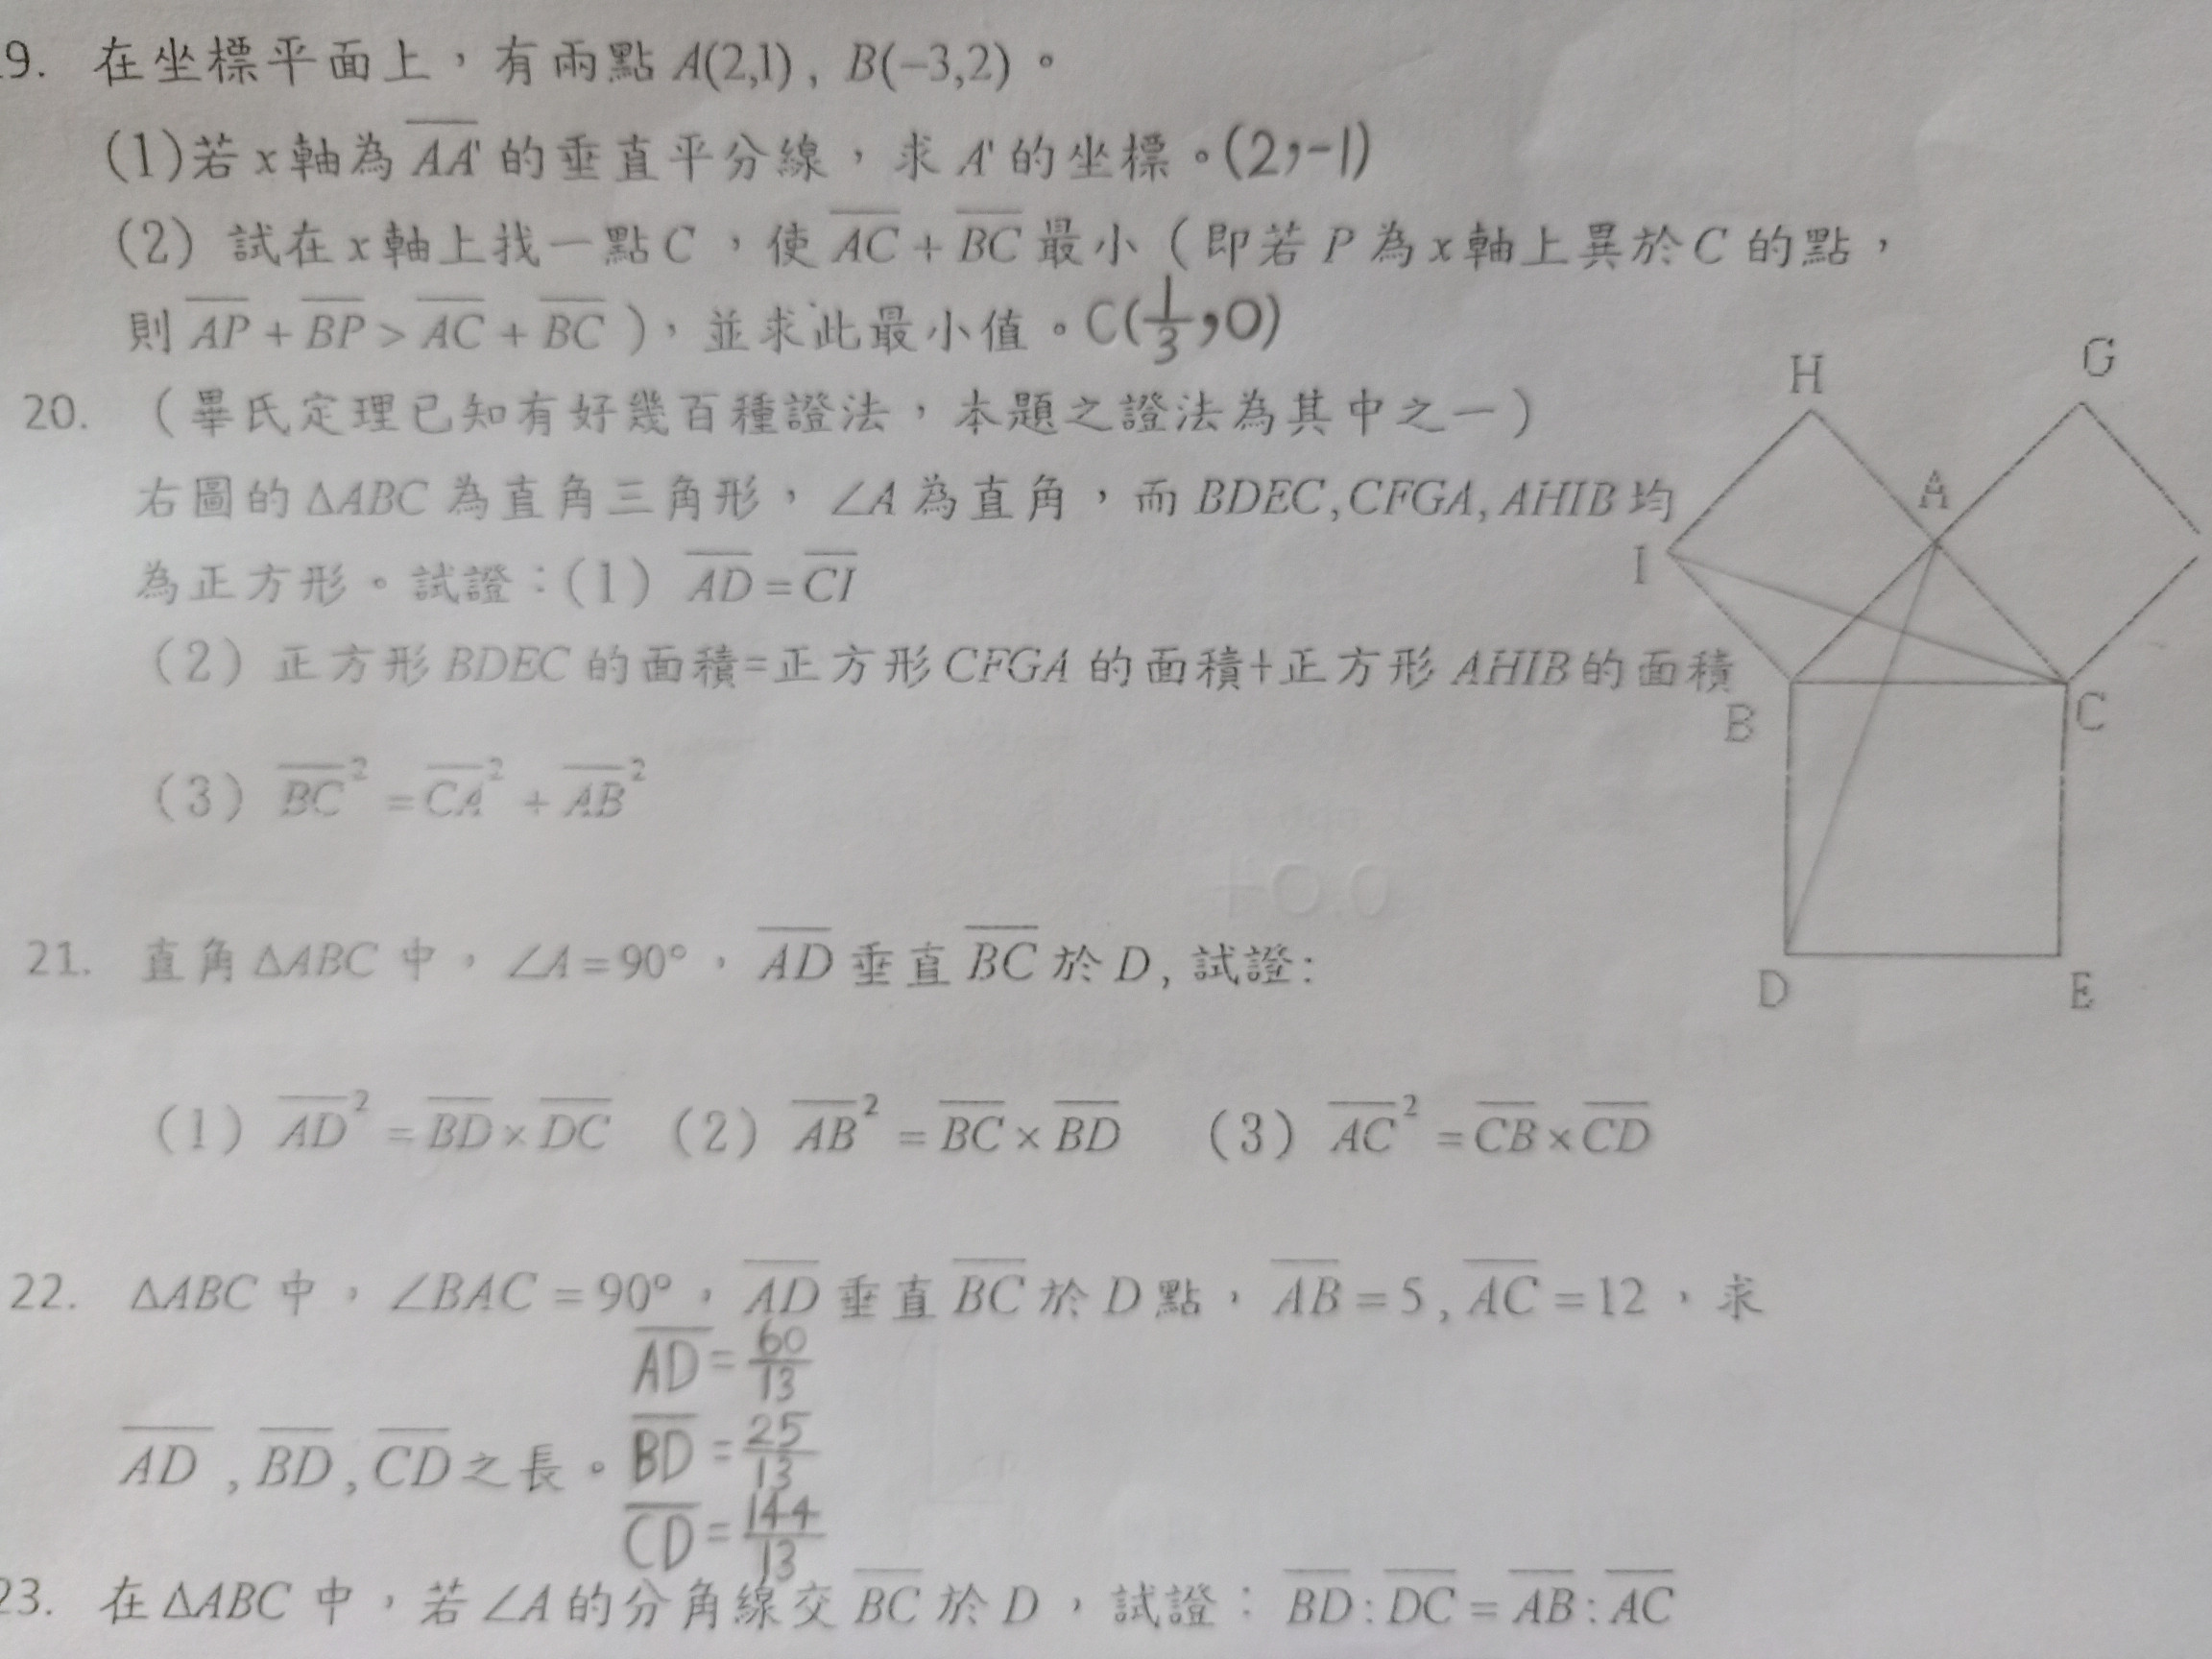 9. 在坐標平面上，有兩點 A(2,1), B(−3,2)。
(1)若 x 軸為 A̅A̅'̅ 的垂直平分線，求 A' 的坐標。(2,-1)
(2) 試在 x 軸上找一點 C ，使 A̅C̅ + B̅C̅ 最小（即若 P 為 x 軸上異於 C 的點，
則 A̅P̅ + B̅P̅ > A̅C̅ + B̅C̅ ），並求此最小值。C(1/3,0)
20. （畢氏定理已知有好幾百種證法，本題之證法為其中之一）
右圖的 ΔABC 為直角三角形，∠A 為直角，而 BDEC,CFGA,AHIB 均
為正方形。試證：(1) A̅D̅ = C̅I̅
(2) 正方形 BDEC 的面積=正方形 CFGA 的面積+正方形 AHIB 的面積
(3) B̅C̅² = C̅A̅² + A̅B̅²
H
G
A
I
B
C
D
E
21. 直角 ΔABC 中，∠A = 90°，A̅D̅ 垂直 B̅C̅ 於 D, 試證:
(1) A̅D̅² = B̅D̅ × D̅C̅ (2) A̅B̅² = B̅C̅ × B̅D̅ (3) A̅C̅² = C̅B̅ × C̅D̅
22. ΔABC 中，∠BAC = 90°，A̅D̅ 垂直 B̅C̅ 於 D 點，A̅B̅ = 5, A̅C̅ = 12，求
A̅D̅ = 60/13
A̅D̅ , B̅D̅ , C̅D̅ 之長。B̅D̅ = 25/13
C̅D̅ = 144/13
23. 在 ΔABC 中，若 ∠A 的分角線交 B̅C̅ 於 D ，試證：B̅D̅ : D̅C̅ = A̅B̅ : A̅C̅